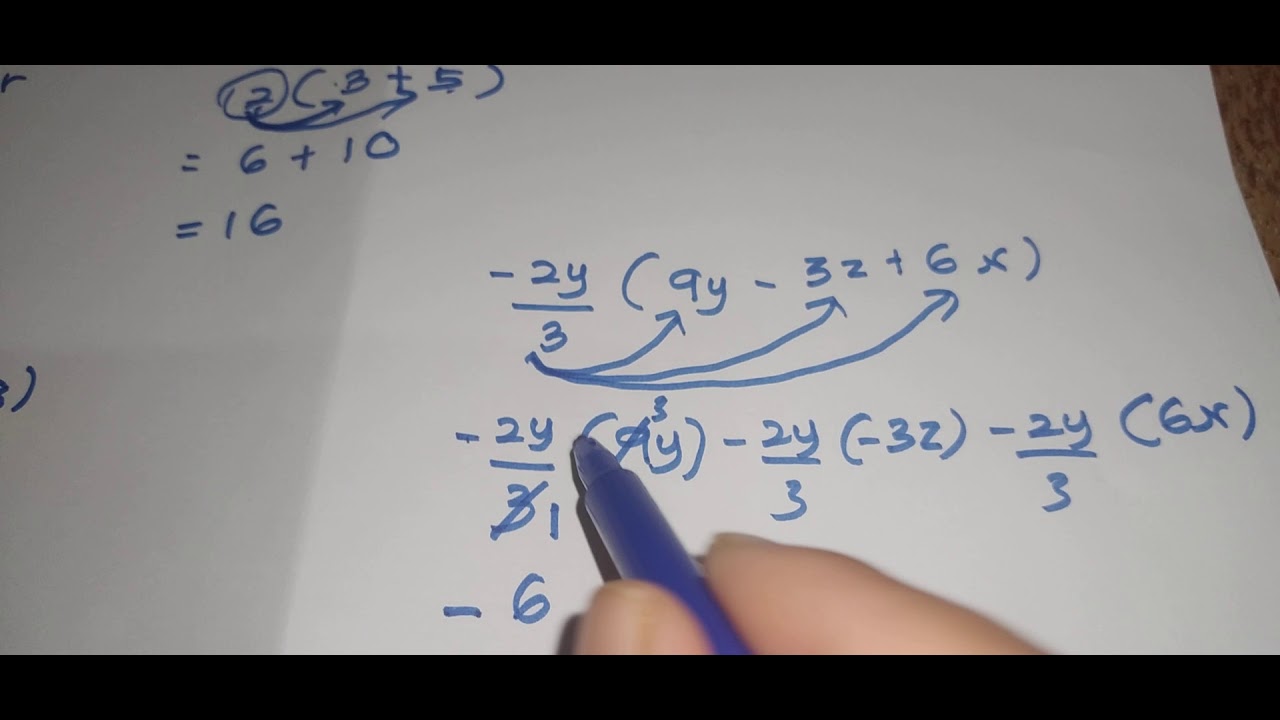 r
2(3+5)
= 6 + 10
= 16
-2y/3 (9y - 3z + 6x)
)
-2y/3 1 (9 3 y) - 2y/3 (-3z) - 2y/3 (6x)
- 6